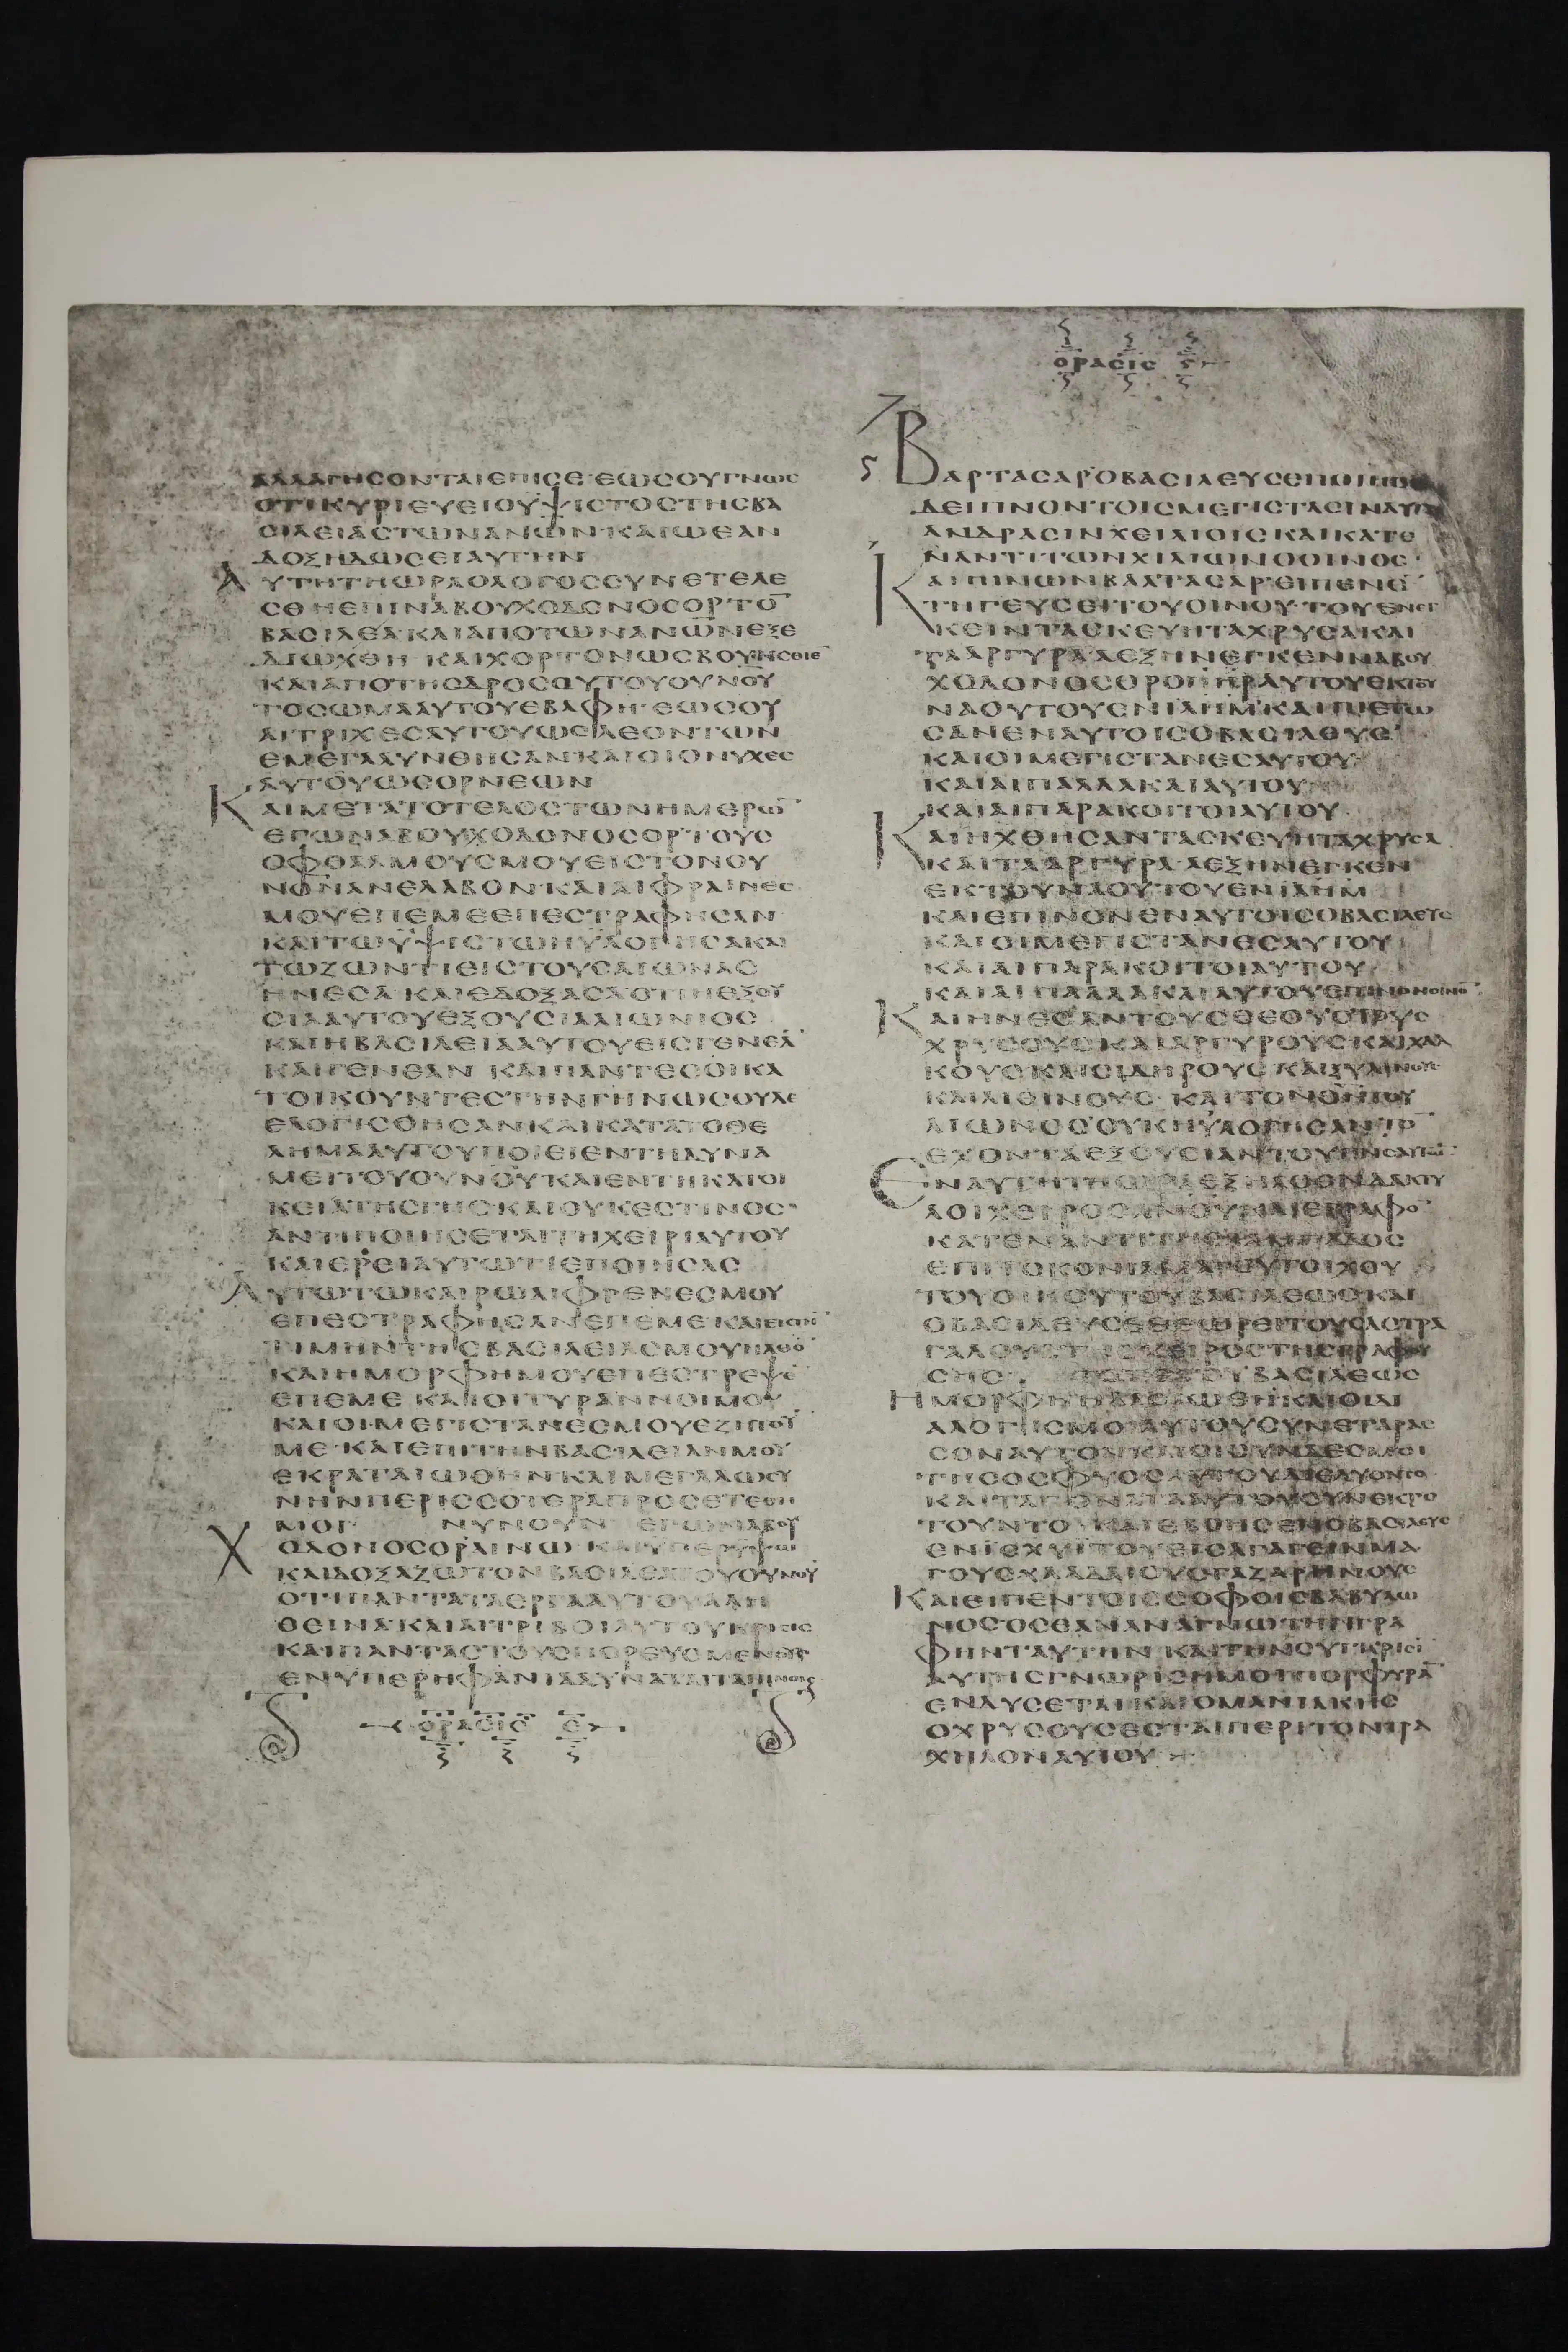 ΑΛΛΑΓΗΣΟΝΤΑΙΕΠΙΣΕ·ΕΩΣΟΥΓΝΩΣ
ΟΤΙΚΥΡΙΕΥΕΙΟΥΨΙΣΤΟΣΤΗΣΒΑ
ΣΙΛΕΙΑΣΤΩΝΑΝΩΝ·ΚΑΙΩΕΑΝ
ΔΟΞΗΔΩΣΕΙΑΥΤΗΝ
ΑΥΤΗΤΗΩΡΑΟΛΟΓΟΣΣΥΝΕΤΕΛΕ
ΣΘΗΕΠΙΝΑΒΟΥΧΟΔΟΝΟΣΟΡ·ΤΟ̅
ΒΑΣΙΛΕΑ·ΚΑΙΑΠΟΤΩΝΑΝΩΝΕΞΕ
ΔΙΩΧΘΗ·ΚΑΙΧΟΡΤΟΝΩΣΒΟΥΣΗΣΘΙΕ̅
ΚΑΙΑΠΟΤΗΣΔΡΟΣΟΥΤΟΥΟΥΝΟΥ
ΤΟΣΩΜΑΑΥΤΟΥΕΒΑΦΗ·ΕΩΣΟΥ
ΑΙΤΡΙΧΕΣΑΥΤΟΥΩΣΛΕΟΝΤΩΝ
ΕΜΕΓΑΛΥΝΘΗΣΑΝ·ΚΑΙΟΙΟΝΥΧΕΣ
ΑΥΤΟΥΩΣΟΡΝΕΩΝ
ΚΑΙΜΕΤΑΤΟΤΕΛΟΣΤΩΝΗΜΕΡΩ̅
ΕΓΩΝΑΒΟΥΧΟΔΟΝΟΣΟΡ·ΤΟΥΣ
ΟΦΘΑΛΜΟΥΣΜΟΥΕΙΣΤΟΝΟΥ
ΝΟΝΑΝΕΛΑΒΟΝ·ΚΑΙΑΙΦΡΑΙΝΕΣ
ΜΟΥΕΠΕΜΕΕΠΕΣΤΡΑΦΗΣΑΝ·
ΚΑΙΤΩΥΨΙΣΤΩΗΥΛΟΓΗΣΑΚΑΙ
ΤΩΖΩΝΤΙΕΙΣΤΟΥΣΑΙΩΝΑΣ
ΗΝΕΣΑ·ΚΑΙΕΔΟΞΑΣΑΟΤΙΗΕΞΟΥ
ΣΙΑΑΥΤΟΥΕΞΟΥΣΙΑΑΙΩΝΙΟΣ
ΚΑΙΗΒΑΣΙΛΕΙΑΑΥΤΟΥΕΙΣΓΕΝΕΑ̅
ΚΑΙΓΕΝΕΑΝ·ΚΑΙΠΑΝΤΕΣΟΙΚΑ
ΤΟΙΚΟΥΝΤΕΣΤΗΝΓΗΝΩΣΟΥΔΕ̅
ΕΛΟΓΙΣΘΗΣΑΝΚΑΙΚΑΤΑΤΟΘΕ
ΛΗΜΑΑΥΤΟΥΠΟΙΕΙΕΝΤΗΔΥΝΑ
ΜΕΙΤΟΥΟΥΝΟΥΚΑΙΕΝΤΗΚΑΤΟΙ
ΚΕΙΑΤΗΣΓΗΣ·ΚΑΙΟΥΚΕΣΤΙΝΟΣ
ΑΝΤΙΠΟΙΗΣΕΤΑΙΤΗΧΕΙΡΙΑΥΤΟΥ
ΚΑΙΕΡΕΙΑΥΤΩΤΙΕΠΟΙΗΣΑΣ
ΑΥΤΩΤΩΚΑΙΡΩΑΙΦΡΕΝΕΣΜΟΥ
ΕΠΕΣΤΡΑΦΗΣΑΝΕΠΕΜΕ·ΚΑΙΕΙΣΤΗ̅
ΤΙΜΗΝΤΗΣΒΑΣΙΛΕΙΑΣΜΟΥΗΛΘΟ̅
ΚΑΙΗΜΟΡΦΗΜΟΥΕΠΕΣΤΡΕΨΕ̅
ΕΠΕΜΕ·ΚΑΙΟΙΤΥΡΑΝΝΟΙΜΟΥ
ΚΑΙΟΙΜΕΓΙΣΤΑΝΕΣΜΟΥΕΖΗΤΟΥ̅
ΜΕ·ΚΑΙΕΠΙΤΗΝΒΑΣΙΛΕΙΑΝΜΟΥ
ΕΚΡΑΤΑΙΩΘΗΝ·ΚΑΙΜΕΓΑΛΩΣΥ
ΝΗΝΠΕΡΙΣΣΟΤΕΡΑΠΡΟΣΕΤΕΘΗ
ΜΟΙ· ΝΥΝΟΥΝ ΕΓΩΝΑΒΟΥ
ΧΟΔΟΝΟΣΟΡΑΙΝΩ·ΚΑΙΥΠΕΡΥΨΩ
ΚΑΙΔΟΞΑΖΩΤΟΝΒΑΣΙΛΕΑΤΟΥΟΥΝΟΥ
ΟΤΙΠΑΝΤΑΤΑΕΡΓΑΑΥΤΟΥΑΛΗ
ΘΕΙΝΑ·ΚΑΙΑΙΤΡΙΒΟΙΑΥΤΟΥΚΡΙΣΙΣ
ΚΑΙΠΑΝΤΑΣΤΟΥΣΠΟΡΕΥΟΜΕΝΟΥΣ
ΕΝΥΠΕΡΗΦΑΝΙΑΔΥΝΑΤΑΙΤΑΠΙΝΩΣΕ
ΟΡΑΣΙΣ Ε
ΟΡΑΣΙΣ ϛ
ΒΑΡΤΑΣΑΡΟΒΑΣΙΛΕΥΣΕΠΟΙΗΣΕ
ΔΕΙΠΝΟΝΤΟΙΣΜΕΓΙΣΤΑΣΙΝΑΥΤΟΥ
ΑΝΔΡΑΣΙΝΧΕΙΛΙΟΙΣΚΑΙΚΑΤΕ
ΝΑΝΤΙΤΩΝΧΙΛΙΩΝΟΟΙΝΟΣ·
ΚΑΙΠΙΝΩΝΒΑΛΤΑΣΑΡ·ΕΙΠΕΝΕ̅
ΤΗΓΕΥΣΕΙΤΟΥΟΙΝΟΥ·ΤΟΥΕΝΕΓ
ΚΕΙΝΤΑΣΚΕΥΗΤΑΧΡΥΣΑΚΑΙ
ΤΑΑΡΓΥΡΑ·ΑΕΞΗΝΕΓΚΕΝΝΑΒΟΥ
ΧΟΔΟΝΟΣΟΡΟΠΗΡΑΥΤΟΥΕΚΤΟΥ
ΝΑΟΥΤΟΥΕΝΙΛΗΜ·ΚΑΙΠΙΕΤΩ
ΣΑΝΕΝΑΥΤΟΙΣΟΒΑΣΙΛΕΥΣ
ΚΑΙΟΙΜΕΓΙΣΤΑΝΕΣΑΥΤΟΥ
ΚΑΙΑΙΠΑΛΛΑΚΑΙΑΥΤΟΥ
ΚΑΙΑΙΠΑΡΑΚΟΙΤΟΙΑΥΤΟΥ
ΚΑΙΗΧΘΗΣΑΝΤΑΣΚΕΥΗΤΑΧΡΥΣΑ
ΚΑΙΤΑΑΡΓΥΡΑ·ΑΕΞΗΝΕΓΚΕΝ
ΕΚΤΟΥΝΑΟΥΤΟΥΕΝΙΛΗΜ
ΚΑΙΕΠΙΝΟΝΕΝΑΥΤΟΙΣΟΒΑΣΙΛΕΥΣ
ΚΑΙΟΙΜΕΓΙΣΤΑΝΕΣΑΥΤΟΥ
ΚΑΙΑΙΠΑΡΑΚΟΙΤΟΙΑΥΤΟΥ
ΚΑΙΑΙΠΑΛΛΑΚΑΙΑΥΤΟΥΕΠΙΝΟΝΟΙΝΟ̅
ΚΑΙΗΝΕΣΑΝΤΟΥΣΘΕΟΥΣΤΟΥΣ
ΧΡΥΣΟΥΣΚΑΙΑΡΓΥΡΟΥΣΚΑΙΧΑΛ
ΚΟΥΣΚΑΙΣΙΔΗΡΟΥΣΚΑΙΞΥΛΙΝΟΥΣ
ΚΑΙΛΙΘΙΝΟΥΣ·ΚΑΙΤΟΝΘΝΤΟΥ
ΑΙΩΝΟΣΟΥΚΗΥΛΟΓΗΣΑΝΤΟ̅
ΕΧΟΝΤΑΕΞΟΥΣΙΑΝΤΟΥΠΝΣΑΥΤΩ̅
ΕΝΑΥΤΗΤΗΩΡΑΕΞΗΛΘΟΝΔΑΚΤΥ
ΛΟΙΧΕΙΡΟΣΑΝΟΥΚΑΙΕΓΡΑΦΟ̅
ΚΑΤΕΝΑΝΤΙΤΗΣΛΑΜΠΑΔΟΣ
ΕΠΙΤΟΚΟΝΙΑΜΑΤΟΥΤΟΙΧΟΥ
ΤΟΥΟΙΚΟΥΤΟΥΒΑΣΙΛΕΩΣΚΑΙ
ΟΒΑΣΙΛΕΥΣΕΘΕΩΡΕΙΤΟΥΣΑΣΤΡΑ
ΓΑΛΟΥΣΤΗΣΧΕΙΡΟΣΤΗΣΓΡΑΦΟΥ
ΣΗΣ· ΤΟΤΕΤΟΥΒΑΣΙΛΕΩΣ
ΗΜΟΡΦΗΗΛΛΟΙΩΘΗ·ΚΑΙΟΙΔΙ
ΑΛΟΓΙΣΜΟΙΑΥΤΟΥΣΥΝΕΤΑΡΑΣ
ΣΟΝΑΥΤΟΝΚΑΙΟΙΣΥΝΔΕΣΜΟΙ
ΤΗΣΟΣΦΥΟΣΑΥΤΟΥΔΙΕΛΥΟΝΤΟ
ΚΑΙΤΑΓΟΝΑΤΑΑΥΤΟΥΣΥΝΕΚΡΟ
ΤΟΥΝΤΟ·ΚΑΙΕΒΟΗΣΕΝΟΒΑΣΙΛΕΥΣ
ΕΝΙΣΧΥΙΤΟΥΕΙΣΑΓΑΓΕΙΝΜΑ
ΓΟΥΣΧΑΛΔΑΙΟΥΣΓΑΖΑΡΗΝΟΥΣ
ΚΑΙΕΙΠΕΝΤΟΙΣΣΟΦΟΙΣΒΑΒΥΛΩ
ΝΟΣΟΣΕΑΝΑΝΑΓΝΩΤΗΝΓΡΑ
ΦΗΝΤΑΥΤΗΝ·ΚΑΙΤΗΝΣΥΓΚΡΙΣΙ̅
ΑΥΤΗΣΓΝΩΡΙΣΗΜΟΙΠΟΡΦΥΡΑ̅
ΕΝΔΥΣΕΤΑΙ·ΚΑΙΟΜΑΝΙΑΚΗΣ
ΟΧΡΥΣΟΥΣΕΣΤΑΙΠΕΡΙΤΟΝΤΡΑ
ΧΗΛΟΝΑΥΤΟΥ